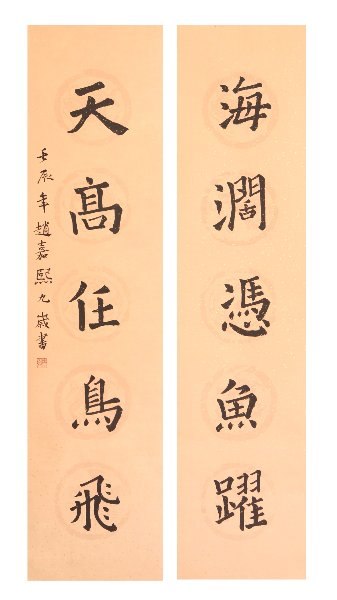 海濶憑魚躍
天高任鳥飛
壬辰年趙嘉熙九歲書